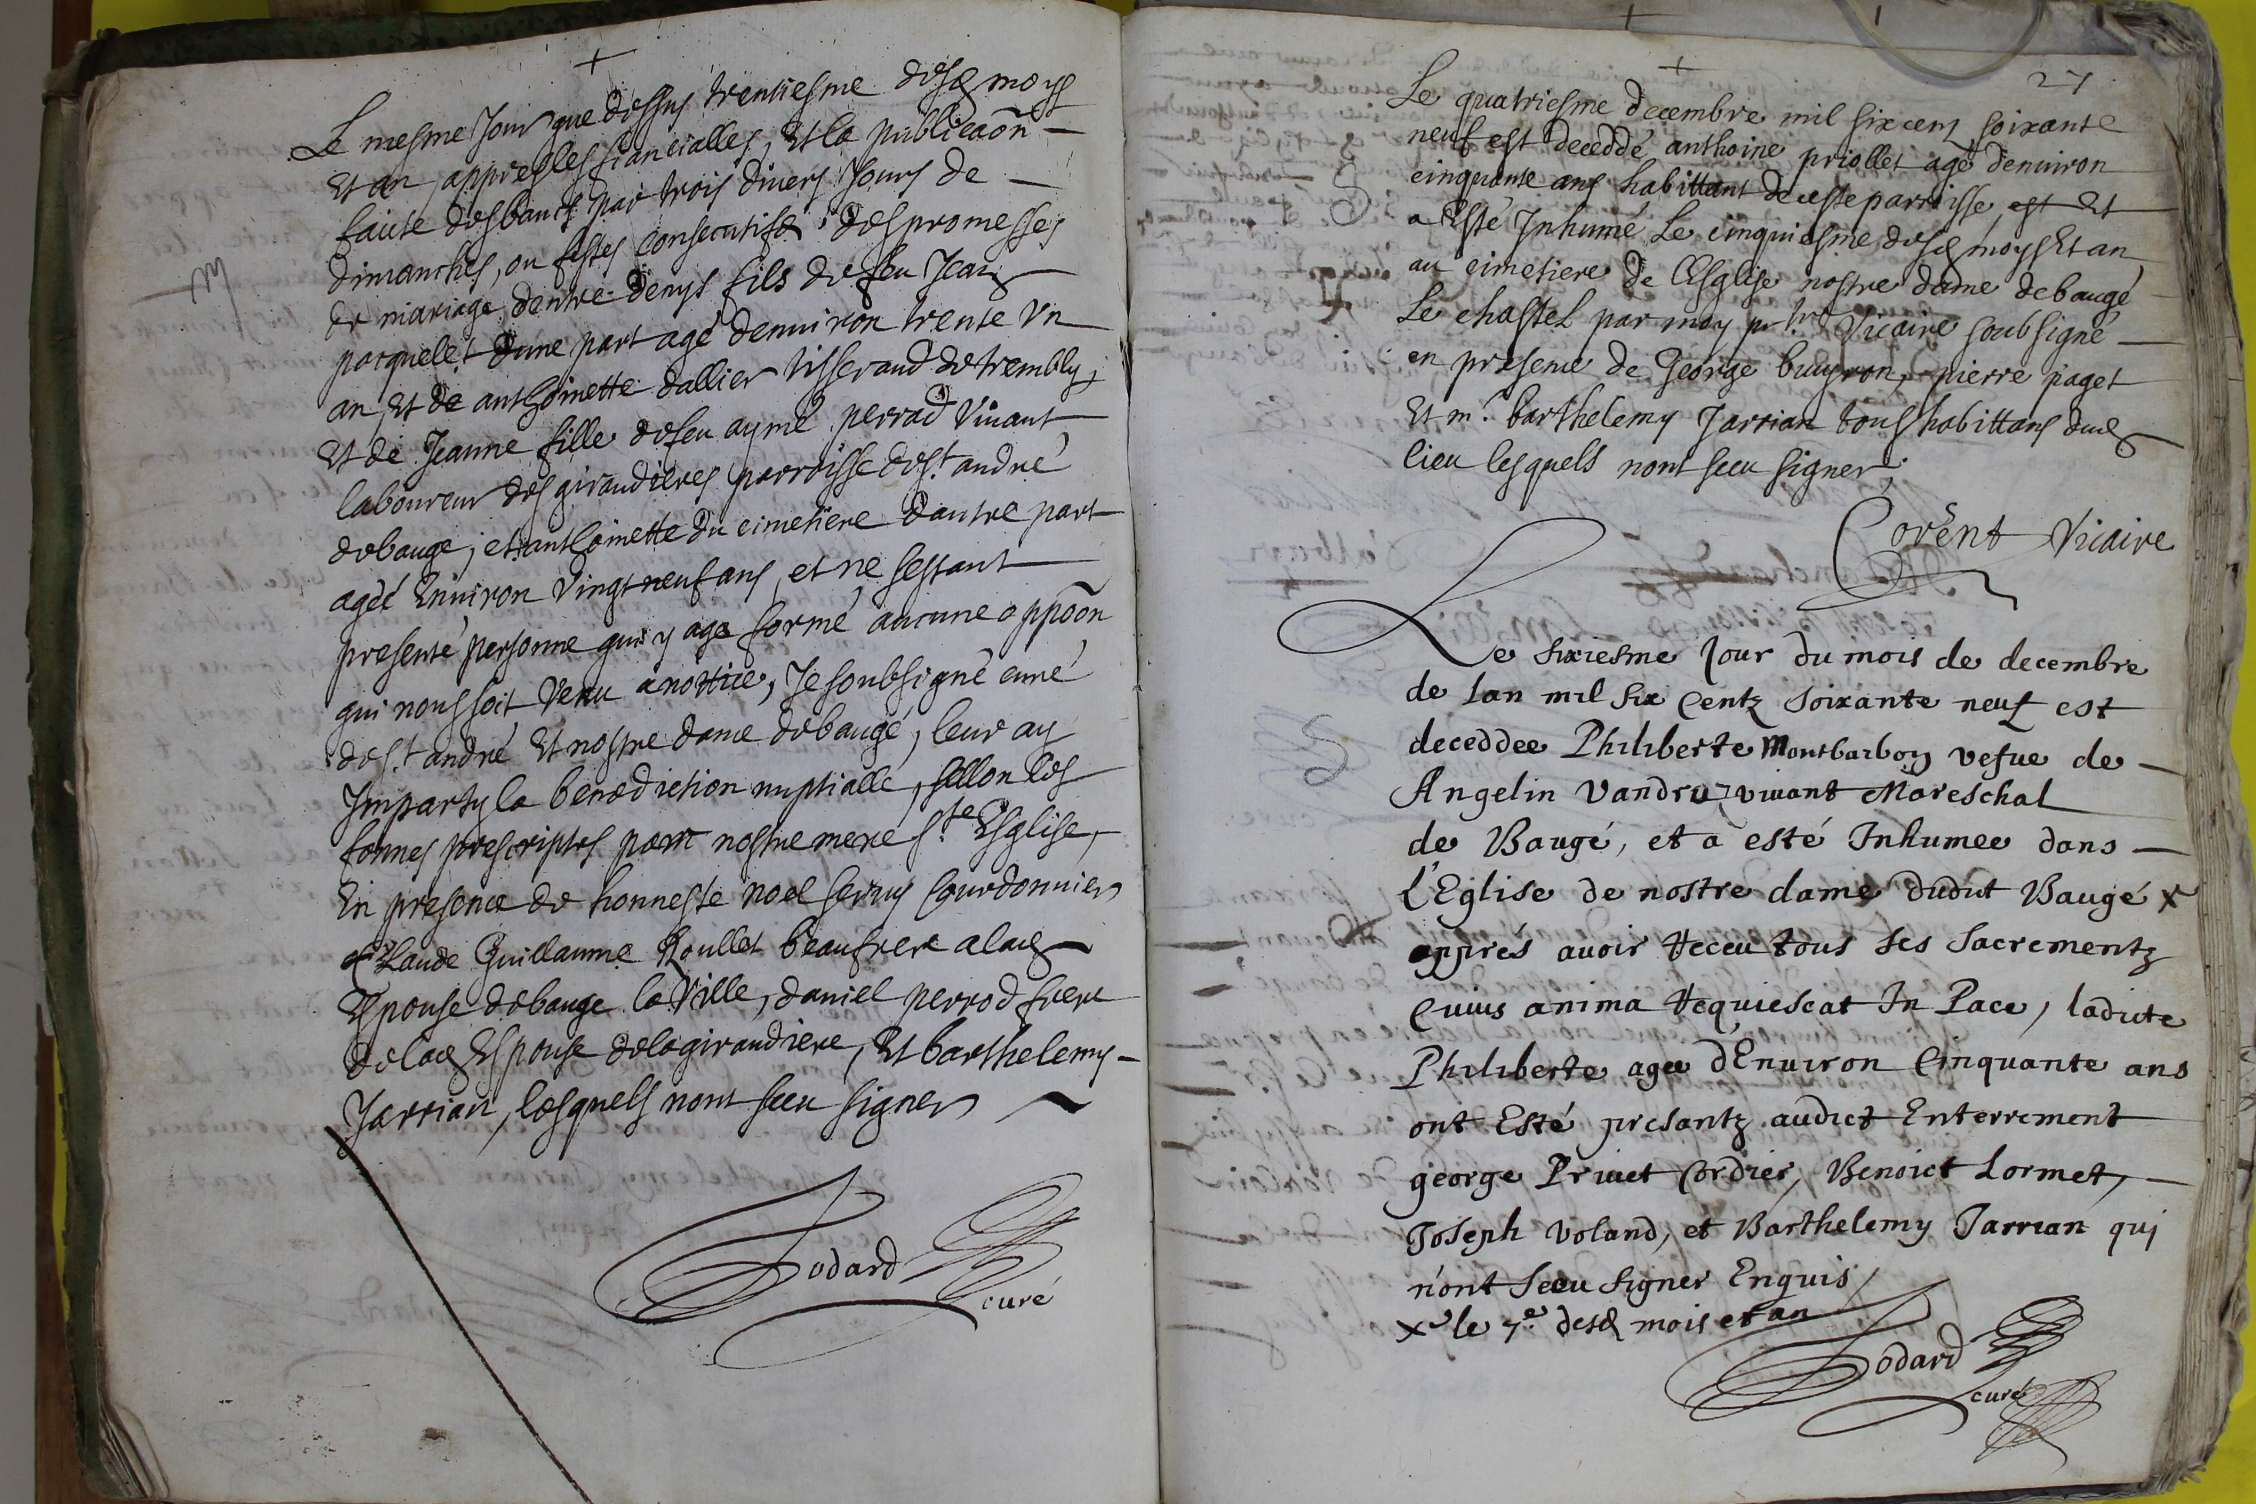 +
Le mesme Jour que dessus trentiesme desd moys
Et an appres les fiancialles, Et la publicaõn
faite des bancs par trois divers Jours de
dimanches, ou festes consecutifs, des promesses
M
de mariage d'entre denys fils de feu Jean
pacquelet dune part agé denuiron trente Un
an, Et de anthoinette dallier tisserand de trembly,
Et de Jeanne fille de feu aymé perrad viuant
laboureur des girandieres parroisse de st andré
de baugé, et anthoinette du cimetiere d'autre part
agée Enuiron vingt neuf ans, et ne sestant
presenté personne qui y aye formé aucune oppõon
qui nous soit venu a nottice, Je soubsigné curé
de st andré Et nostre dame de baugé, leur ay
Imparty la benediction nuptialle, sellon les
formes prescriptes par nostre mere ste Esglise,
En presence de honneste noel seruy Courdonnier
Claude Guillaume Roullet beaufrere a lad
Espouse de bauge la ville, daniel perrod frere
de lad Espouse de la girandiere, Et barthelemy
Jarrian, lesquels nont sceu signer
Jodard
curé
+
27
Le quatriesme decembre mil six cens soixante
neuf est deceddé anthoine priollet agé denuiron
S
cinquante ans habittant de ceste parroisse est Et
a Esté Inhumé Le cinquiesme desd moys Et an
au cimetiere de l'Esglise nostre dame de baugé
Le chastel par moy pbre Vicaire soubsigné
en presence de George buyron, pierre paget
Et mr barthelemy Jarrian tous habittans dud
lieu lesquels nont sceu signer;
Corent Vicaire
Le sixiesme Jour du mois de decembre
de lan mil six Centz soixante neuf est
S
deceddee Philiberte Montbarbon vefue de
Angelin Vandru viuant Mareschal
de Baugé, et a esté Inhumee dans
l'Eglise de nostre dame dudit Baugé x
apprés auoir Receu tous ses sacrementz
Cuius anima Requiescat In Pace, ladite
Philiberte agee d'Enuiron Cinquante ans
ont Esté presantz audict Enterrement
george Priuet Cordier, Benoict Lormet,
Joseph Voland, et Barthelemy Jarrian qui
n'ont sceu signer Enquis
x le 7e desd mois et an
Jodard
curé